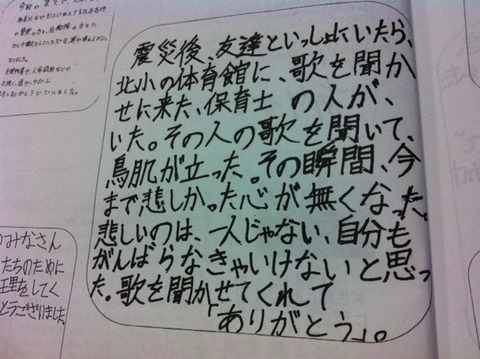 震災後、友達といっしょにいたら、
北小の体育館に、歌を聞か
せに来た、保育士の人が、
いた。その人の歌を聞いて、
鳥肌が立った。その瞬間、今
まで悲しかった心が無くなった。
悲しいのは、一人じゃない、自分も
がんばらなきゃいけないと思っ
た。歌を聞かせてくれて
「ありがとう」。
のみなさん
たちのために
理をしてく
とうございました